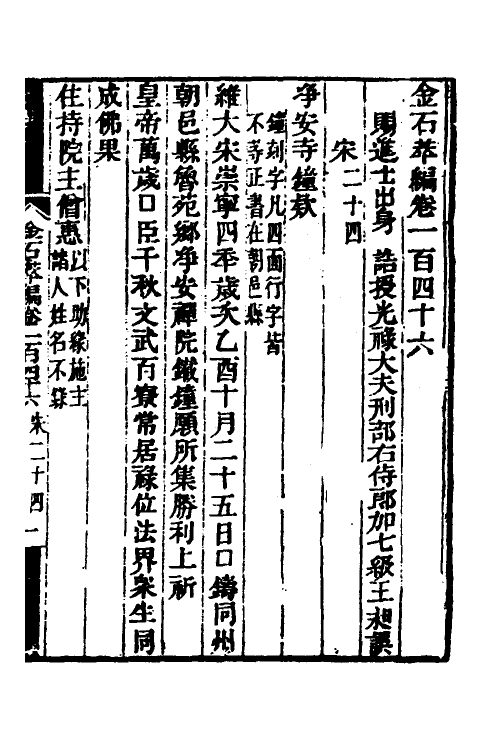 金石萃編卷一百四十六
賜進士出身 誥授光祿大夫刑部右侍郎加七級王昶譔
宋二十四
净安寺鐘欵
鐘刻字凡四面行字皆
不等正書在朝邑縣
維大宋崇寧四年歲次乙酉十月二十五日口鑄同州
朝邑縣魯苑鄉净安禪院鐵鐘願所集勝利上祈
皇帝萬歲口臣千秋文武百寮常居祿位法界衆生同
成佛果
住持院主僧惠
以下助緣施主
諸人姓名不錄
金石萃編卷一百四十六 宋二十四 一